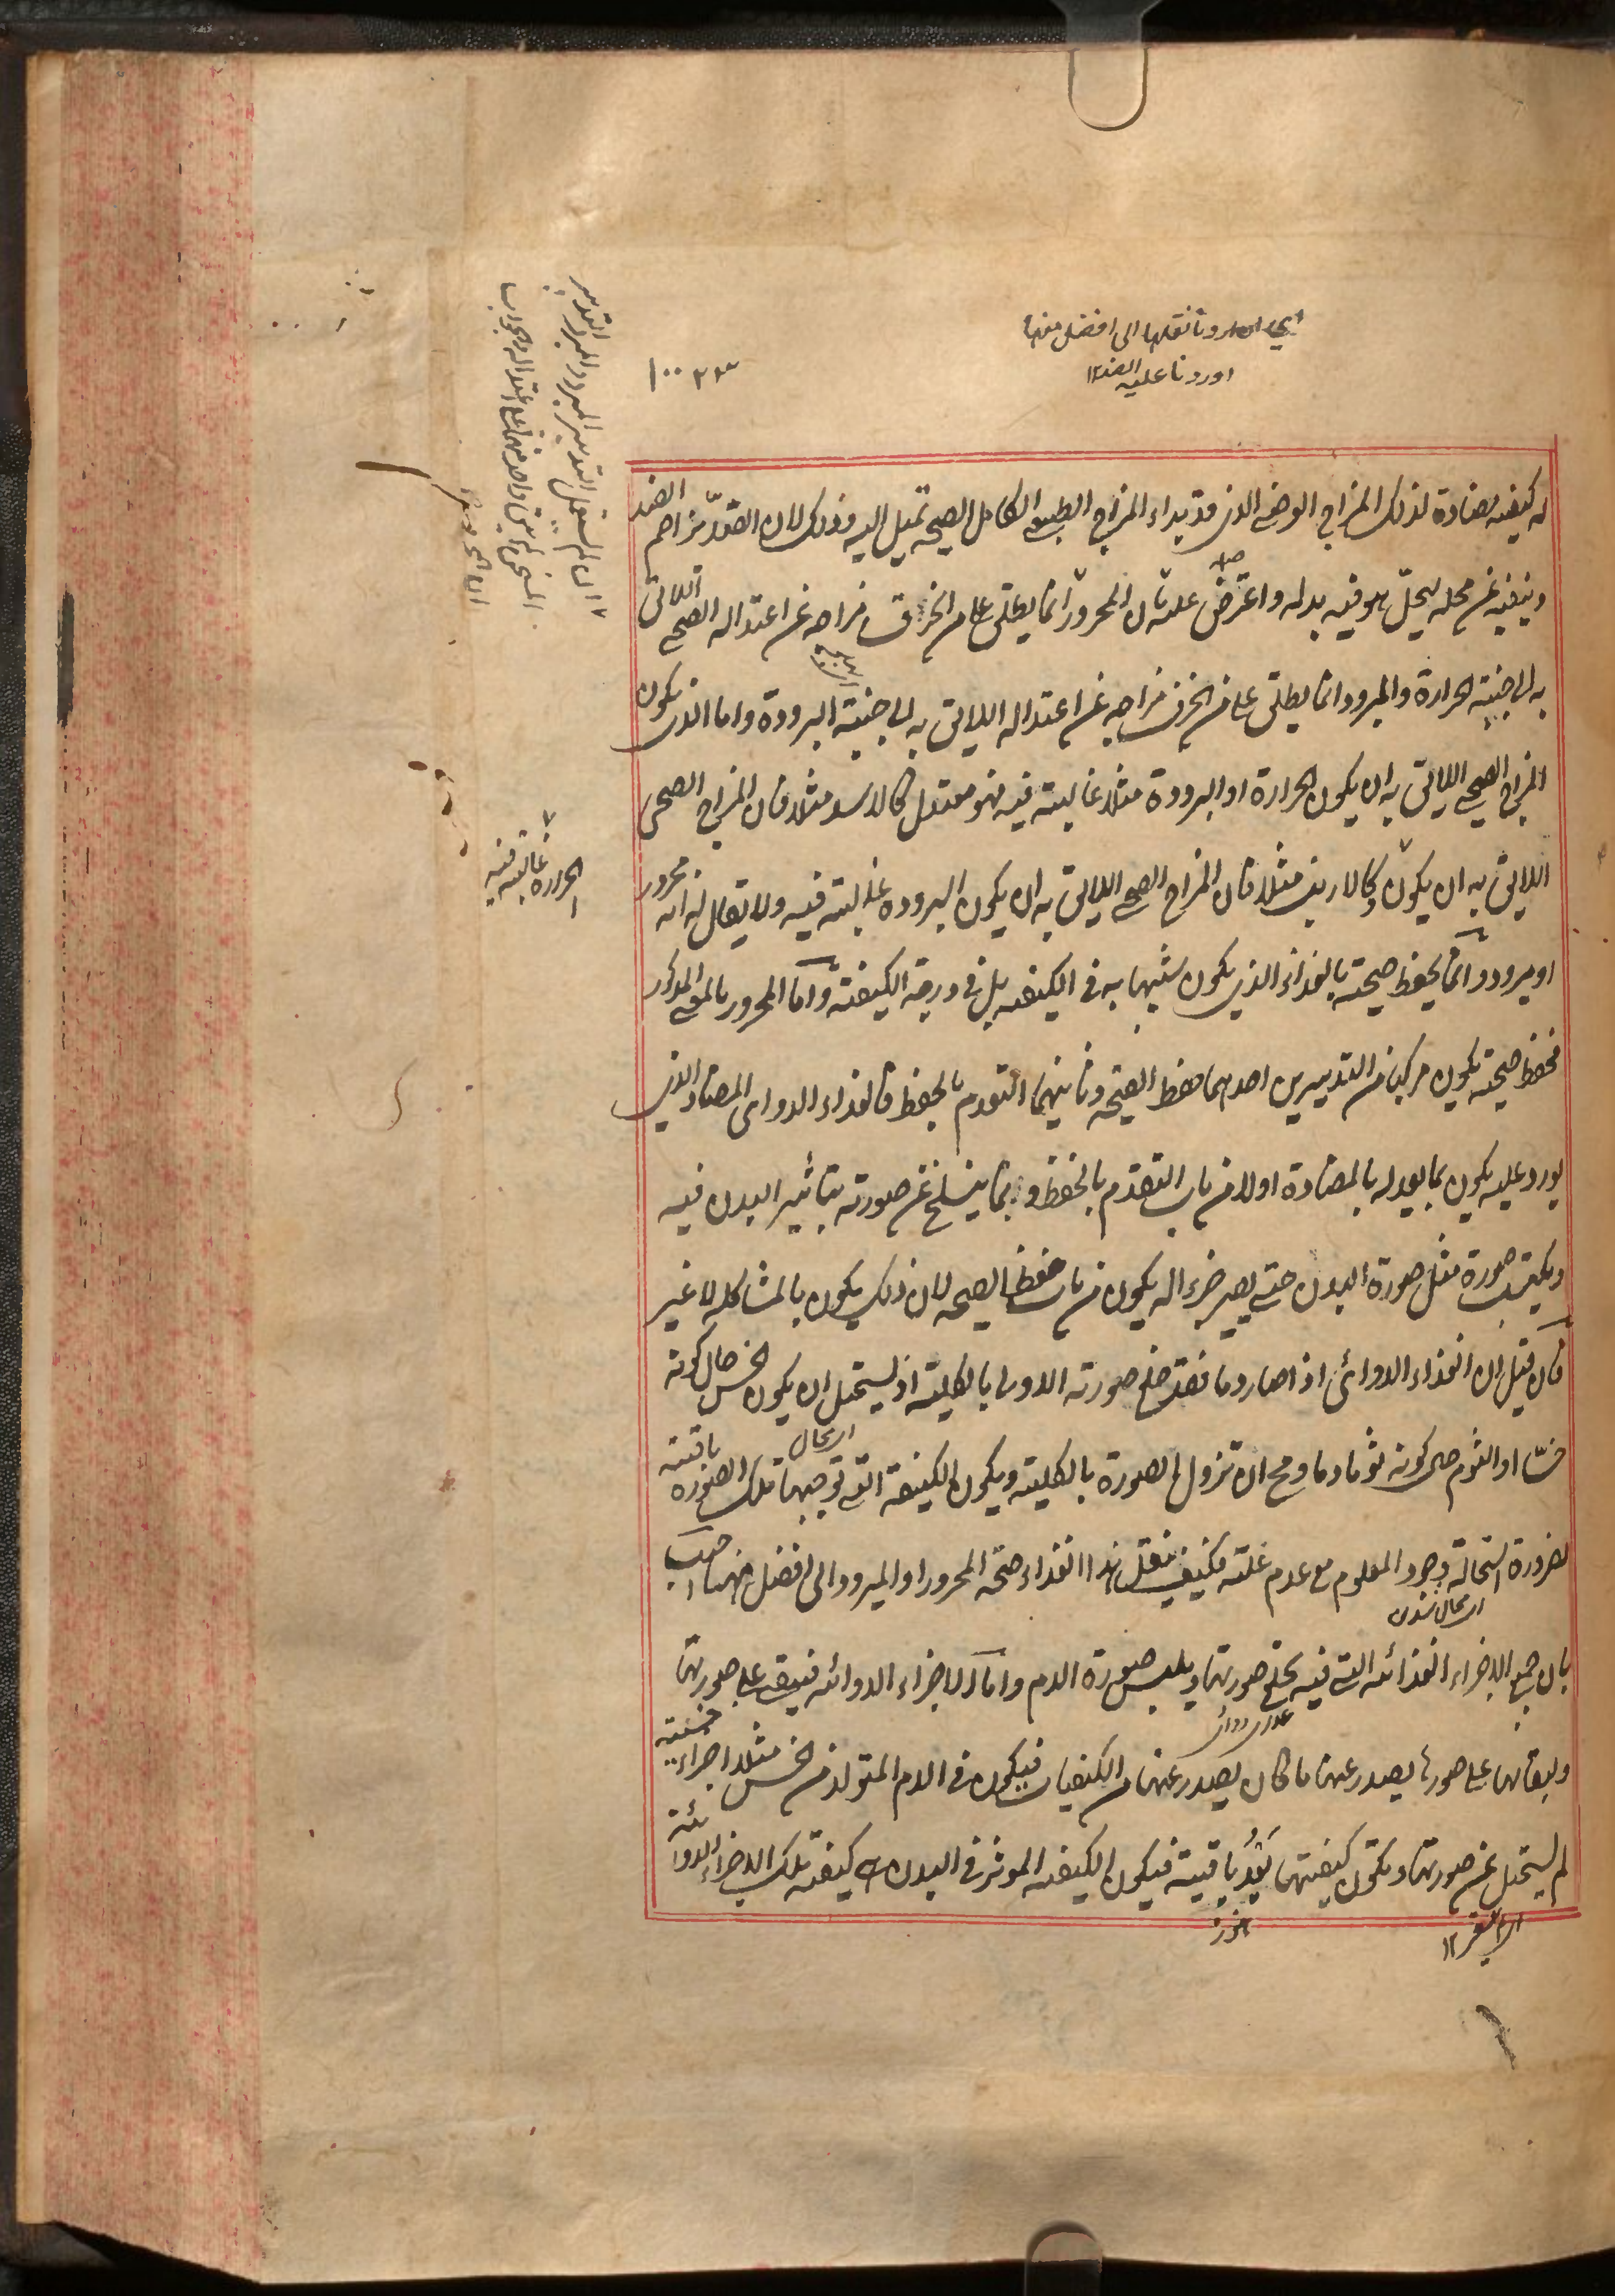 اي اردنا نقلها الى افضل منها
اوردنا عليه الضد ١٢
له كيفيه مضادة لذلك المزاج العرضي الذي قد بداء المزاج الطبيعي الكامل الصحيح تميل اليه وذلك لان الضد يزاحم الضد
وينفيه عن محله ليحل هو فيه بدله واعترض عليه بان المحرور انما يطلق على من انحرف مزاجه عن اعتداله الصحي اللائق
به الى جنبة الحرارة والمبرود انما يطلق على من انحرف مزاجه عن اعتداله اللائق به الى جنبة البرودة واما الذي يكون
المزاج الصحي اللائق به ان يكون الحرارة او البرودة مثلا غالبة فيه فهو معتدل كالاسد مثلا فان المزاج الصحي
اللائق به ان يكون وكالارنب مثلا فان المزاج الصحي اللائق به ان يكون البرودة غالبته فيه ولا يقال له انه محرور
او مبرود وانما يحفظ صحته بالغذاء الذي يكون شبيها به في الكيفيه بل في درجة الكيفية واما المحرور بالمعنى المذكور
فحفظ صحته يكون مركبا من التدبيرين احدهما حفظ الصحة وثانيهما التقدم بالحفظ فالغذاء الدوائى المضاد الذي
يورد عليه يكون بما يعدله بالمضادة اولا من باب التقدم بالحفظ وبما ينسلخ عن صورته بتاثير البدن فيه
ويكتسب صورة مثل صورة البدن حتى يصير جزء اله يكون من باب حفظ الصحه لان ذلك يكون بالمشاكله لا غير
فان قيل ان الغذاء الدوائى اذا صار دما فقد خلع صورته الاولى بالكلية اذ يستحيل ان يكون الخس حال كونه
خسا او الثوم حال كونه ثوما دما ومح ان تزول الصورة بالكلية ويكون الكيفية التي توجبها تلك الصورة باقية
لضرورة استحالة وجود المعلوم مع عدم علته فكيف ينقل هذا الغذاء صحة المحرور او المبرود الى افضل منها اجيب
بان جميع الاجزاء الغذائه التي فيه يخلع صورتها ويلبس صورة الدم واما الاجزاء الدوائه فيبقى على صورتها
ولبقائها على صورها يصدر عنها ما كان يصدر عنها من الكيفيات فيكون في الدم المتولد من الخس مثلا اجزاء خسية
لم يستحيل عن صورتها وتكون كيفيتها بعد باقية فيكون الكيفيه الموثر في البدن كيفية تلك الاجزاء الدوائية
الحرارة غالبته فيه